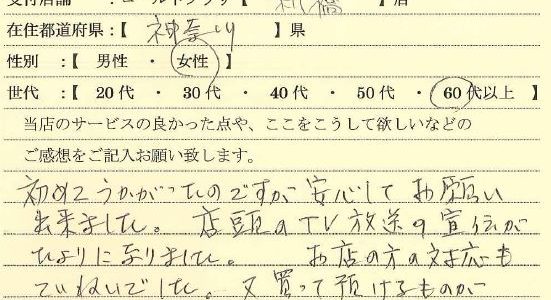 受付店舗 : ゴールドプラザ 【 新橋 】店
在住都道府県:【 神奈川 】県
性別 :【 男性 ・ 女性 】
世代 :【 20代 ・ 30代 ・ 40代 ・ 50代 ・ 60代以上 】
当店のサービスの良かった点や、ここをこうして欲しいなどの
ご感想をご記入お願い致します。
初めてうかがったのですが 安心して お願い
出来ました。 店頭のTV放送の宣伝が
たよりになりました。 お店の方の対応も
ていねいでした。 又 買って 預けるものが